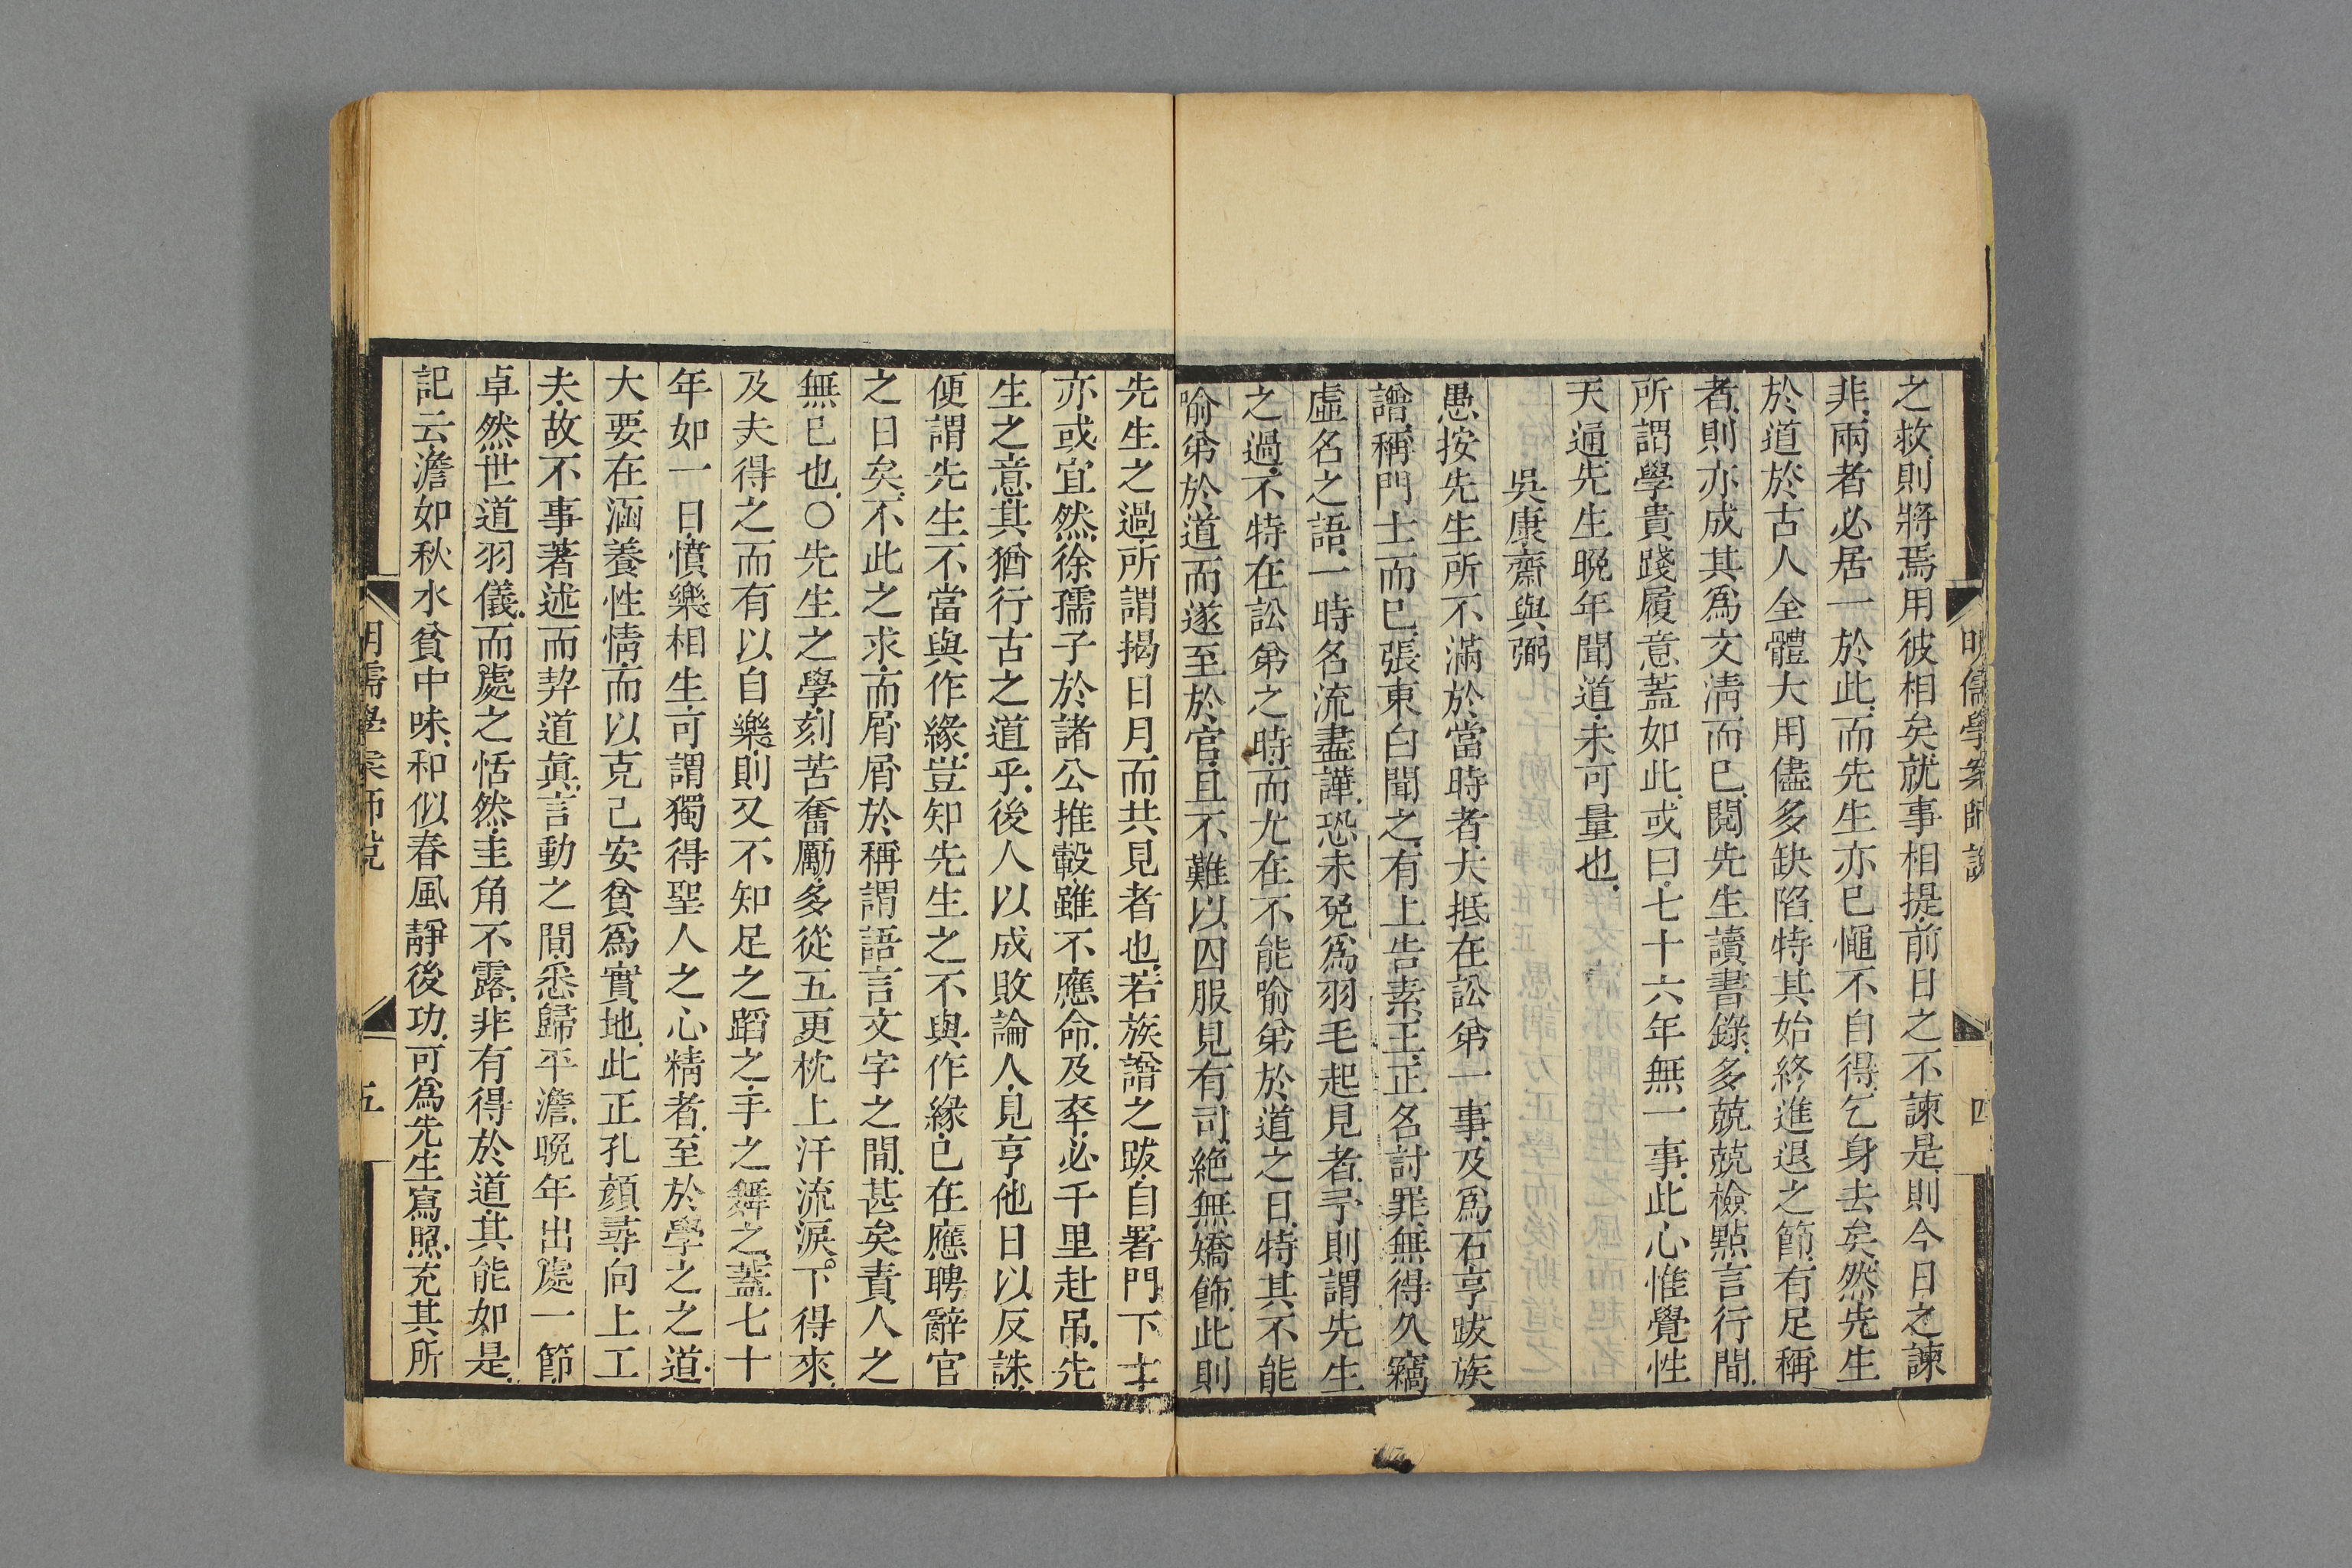 明儒學案師說
四
之救、則將焉用彼相矣、就事相提、前日之不諫是、則今日之諫
非、兩者必居一於此、而先生亦已愧不自得、乞身去矣、然先生
於道於古人全體大用儘多缺陷、特其始終進退之節、有足稱
者、則亦成其爲文淸而已、閱先生讀書錄、多兢兢檢點言行間、
所謂學貴踐履、意蓋如此、或曰、七十六年無一事、此心惟覺性
天通、先生晚年聞道、未可量也、
吳康齋與弼
愚按先生所不滿於當時者、大抵在訟弟一事、及爲石亨跋族
譜、稱門士而已、張東白聞之、有上告素王、正名討罪、無得久竊
虛名之語、一時名流盡譁、恐未免爲羽毛起見者、予則謂先生
之過、不特在訟弟之時、而尤在不能喻弟於道之日、特其不能
喻弟於道、而遂至於官、且不難以囚服見有司、絕無矯飾、此則
先生之過、所謂揭日月而共見者也、若族譜之跋、自署門下士、
亦或宜然、徐孺子於諸公推轂、雖不應命、及卒、必千里赴吊、先
生之意、其猶行古之道乎、後人以成敗論人、見亨他日以反誅、
便謂先生不當與作緣、豈知先生之不與作緣、已在應聘辭官
之日矣、不此之求、而屑屑於稱謂語言文字之間、甚矣責人之
無已也、○先生之學、刻苦奮勵、多從五更枕上汗流淚下得來、
及夫得之而有以自樂、則又不知足之蹈之、手之舞之、蓋七十
年如一日、憤樂相生、可謂獨得聖人之心精者、至於學之之道、
大要在涵養性情、而以克己安貧爲實地、此正孔顏尋向上工
夫、故不事著述、而契道眞、言動之間、悉歸平澹、晚年出處一節、
卓然世道羽儀、而處之恬然、圭角不露、非有得於道、其能如是、
記云、澹如秋水貧中味、和似春風靜後功、可爲先生寫照、充其所
明儒學案師說
五